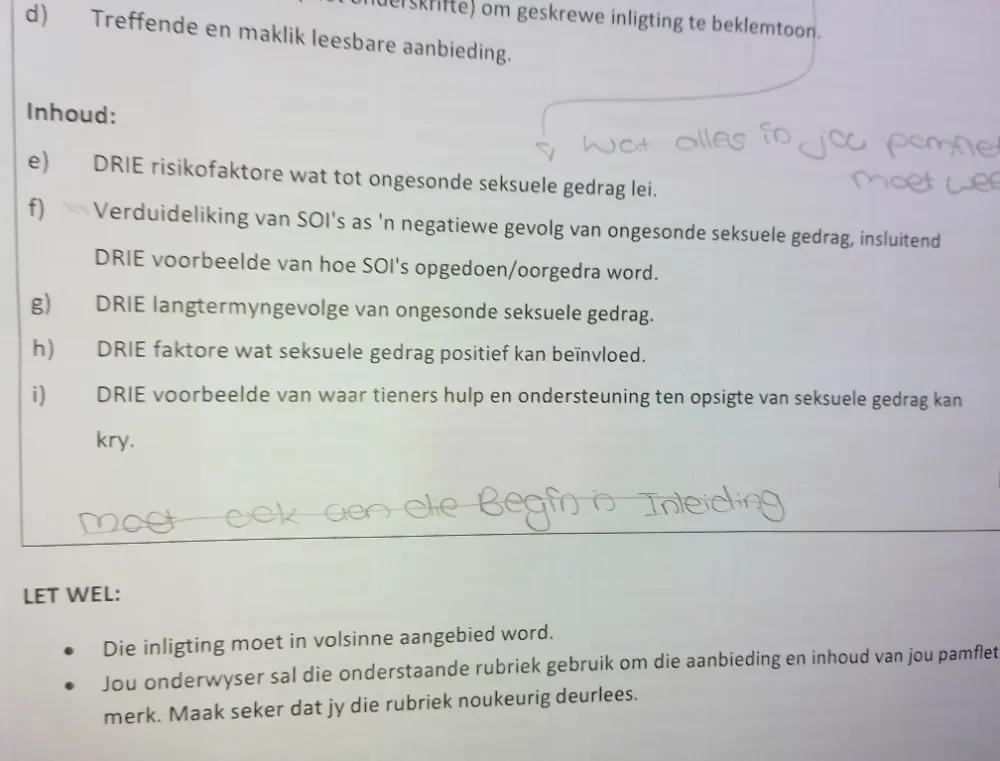 onderskrifte) om geskrewe inligting te beklemtoon.
d) Treffende en maklik leesbare aanbieding.
Inhoud:
wat alles in jou pamflet
moet wee
e) DRIE risikofaktore wat tot ongesonde seksuele gedrag lei.
f) Verduideliking van SOI's as 'n negatiewe gevolg van ongesonde seksuele gedrag, insluitend
DRIE voorbeelde van hoe SOI's opgedoen/oorgedra word.
g) DRIE langtermyngevolge van ongesonde seksuele gedrag.
h) DRIE faktore wat seksuele gedrag positief kan beïnvloed.
i) DRIE voorbeelde van waar tieners hulp en ondersteuning ten opsigte van seksuele gedrag kan
kry.
moet eek aan die Begin 'n Inleiding
LET WEL:
• Die inligting moet in volsinne aangebied word.
• Jou onderwyser sal die onderstaande rubriek gebruik om die aanbieding en inhoud van jou pamflet
merk. Maak seker dat jy die rubriek noukeurig deurlees.